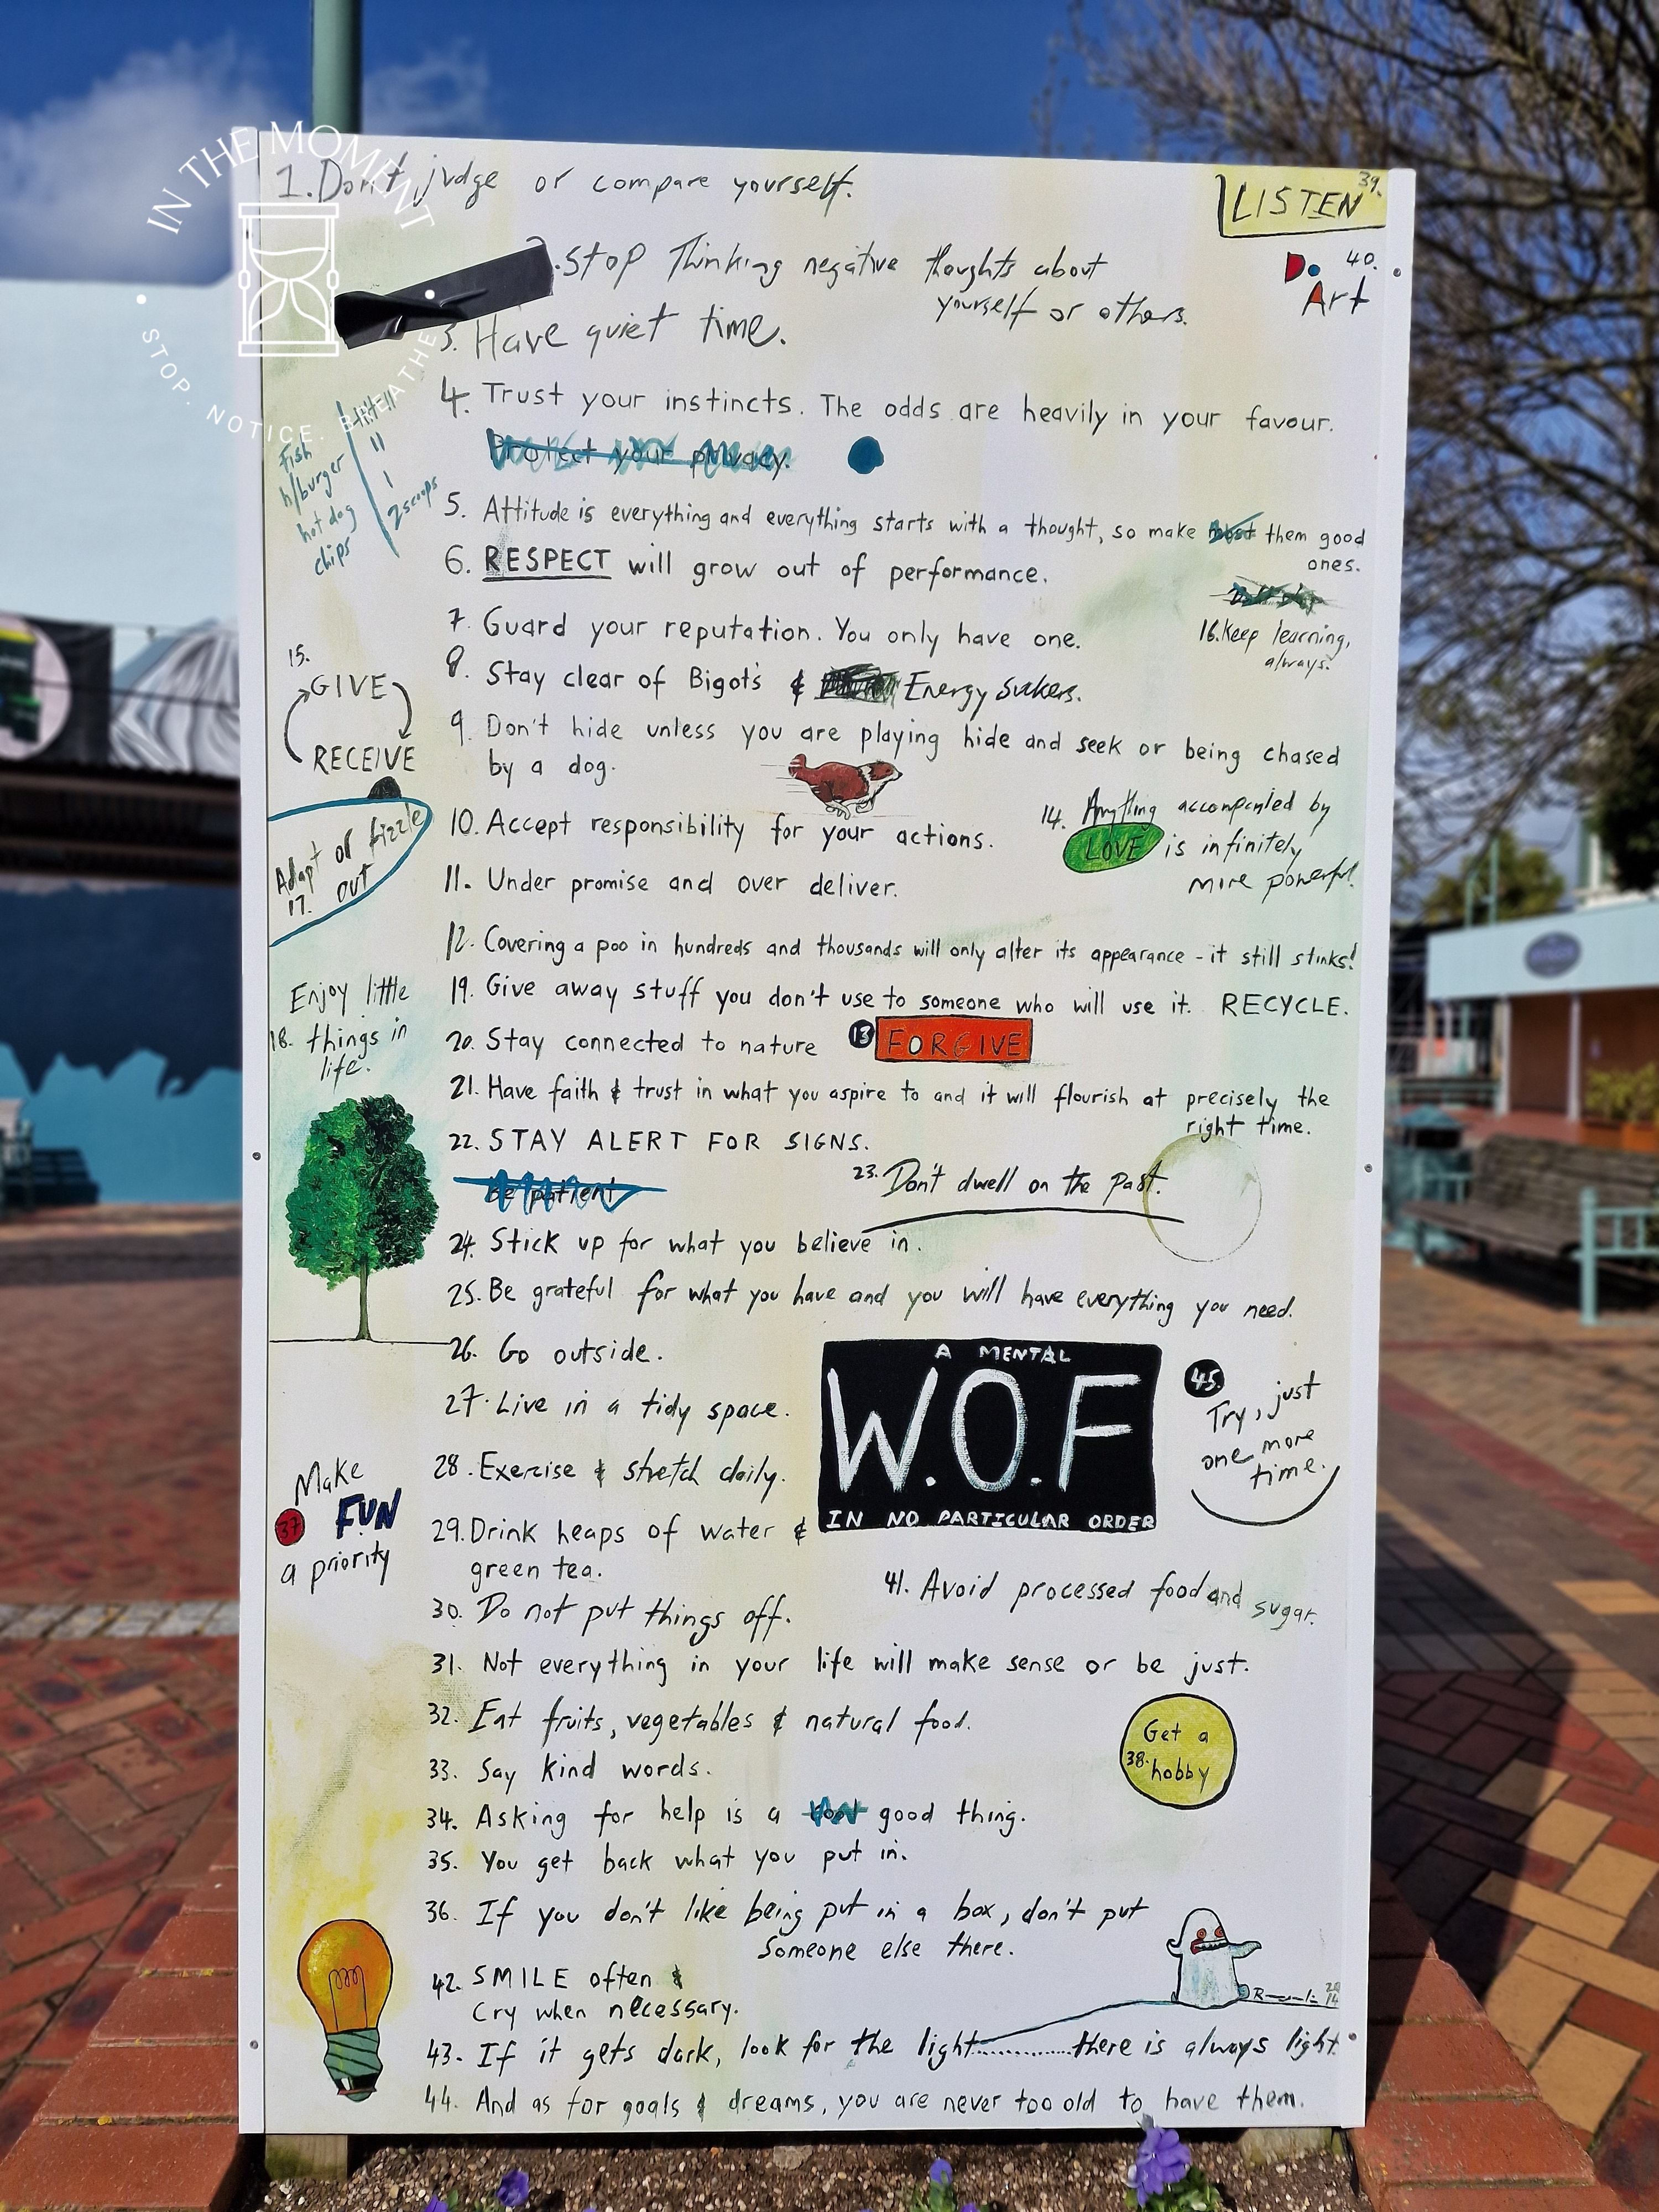 IN THE MOMENT
STOP. NOTICE. BREATHE
1. Don't judge or compare yourself.
39.
LISTEN
2. Stop Thinking negative thoughts about
yourself or others.
40.
Do Art
3. Have quiet time.
4. Trust your instincts. The odds are heavily in your favour.
Protect your privacy.
fish
h/burger 11
hot dog 1
chips 2 scoops
5. Attitude is everything and everything starts with a thought, so make them good
ones.
6. RESPECT will grow out of performance.
7. Guard your reputation. You only have one.
16. Keep learning,
always.
8. Stay clear of Bigot's & Energy Suckers.
15.
GIVE
RECEIVE
9. Don't hide unless you are playing hide and seek or being chased
by a dog.
10. Accept responsibility for your actions.
14. Anything accompanied by
LOVE is infinitely
more powerful.
Adapt or fizzle
17. out
11. Under promise and over deliver.
12. Covering a poo in hundreds and thousands will only alter its appearance - it still stinks!
Enjoy little
18. things in
life.
19. Give away stuff you don't use to someone who will use it. RECYCLE.
20. Stay connected to nature
13 FORGIVE
21. Have faith & trust in what you aspire to and it will flourish at precisely the
right time.
22. STAY ALERT FOR SIGNS.
be patient
23. Don't dwell on the past.
24. Stick up for what you believe in.
25. Be grateful for what you have and you will have everything you need.
26. Go outside.
27. Live in a tidy space.
A MENTAL
W.O.F
IN NO PARTICULAR ORDER
45.
Try, just
one more
time.
28. Exercise & stretch daily.
Make
37 FUN
a priority
29. Drink heaps of water &
green tea.
30. Do not put things off.
41. Avoid processed food and sugar.
31. Not everything in your life will make sense or be just.
32. Eat fruits, vegetables & natural food.
33. Say kind words.
Get a
38. hobby
34. Asking for help is a good thing.
35. You get back what you put in.
36. If you don't like being put in a box, don't put
someone else there.
42. SMILE often &
Cry when necessary.
43. If it gets dark, look for the light.............there is always light.
44. And as for goals & dreams, you are never too old to have them.